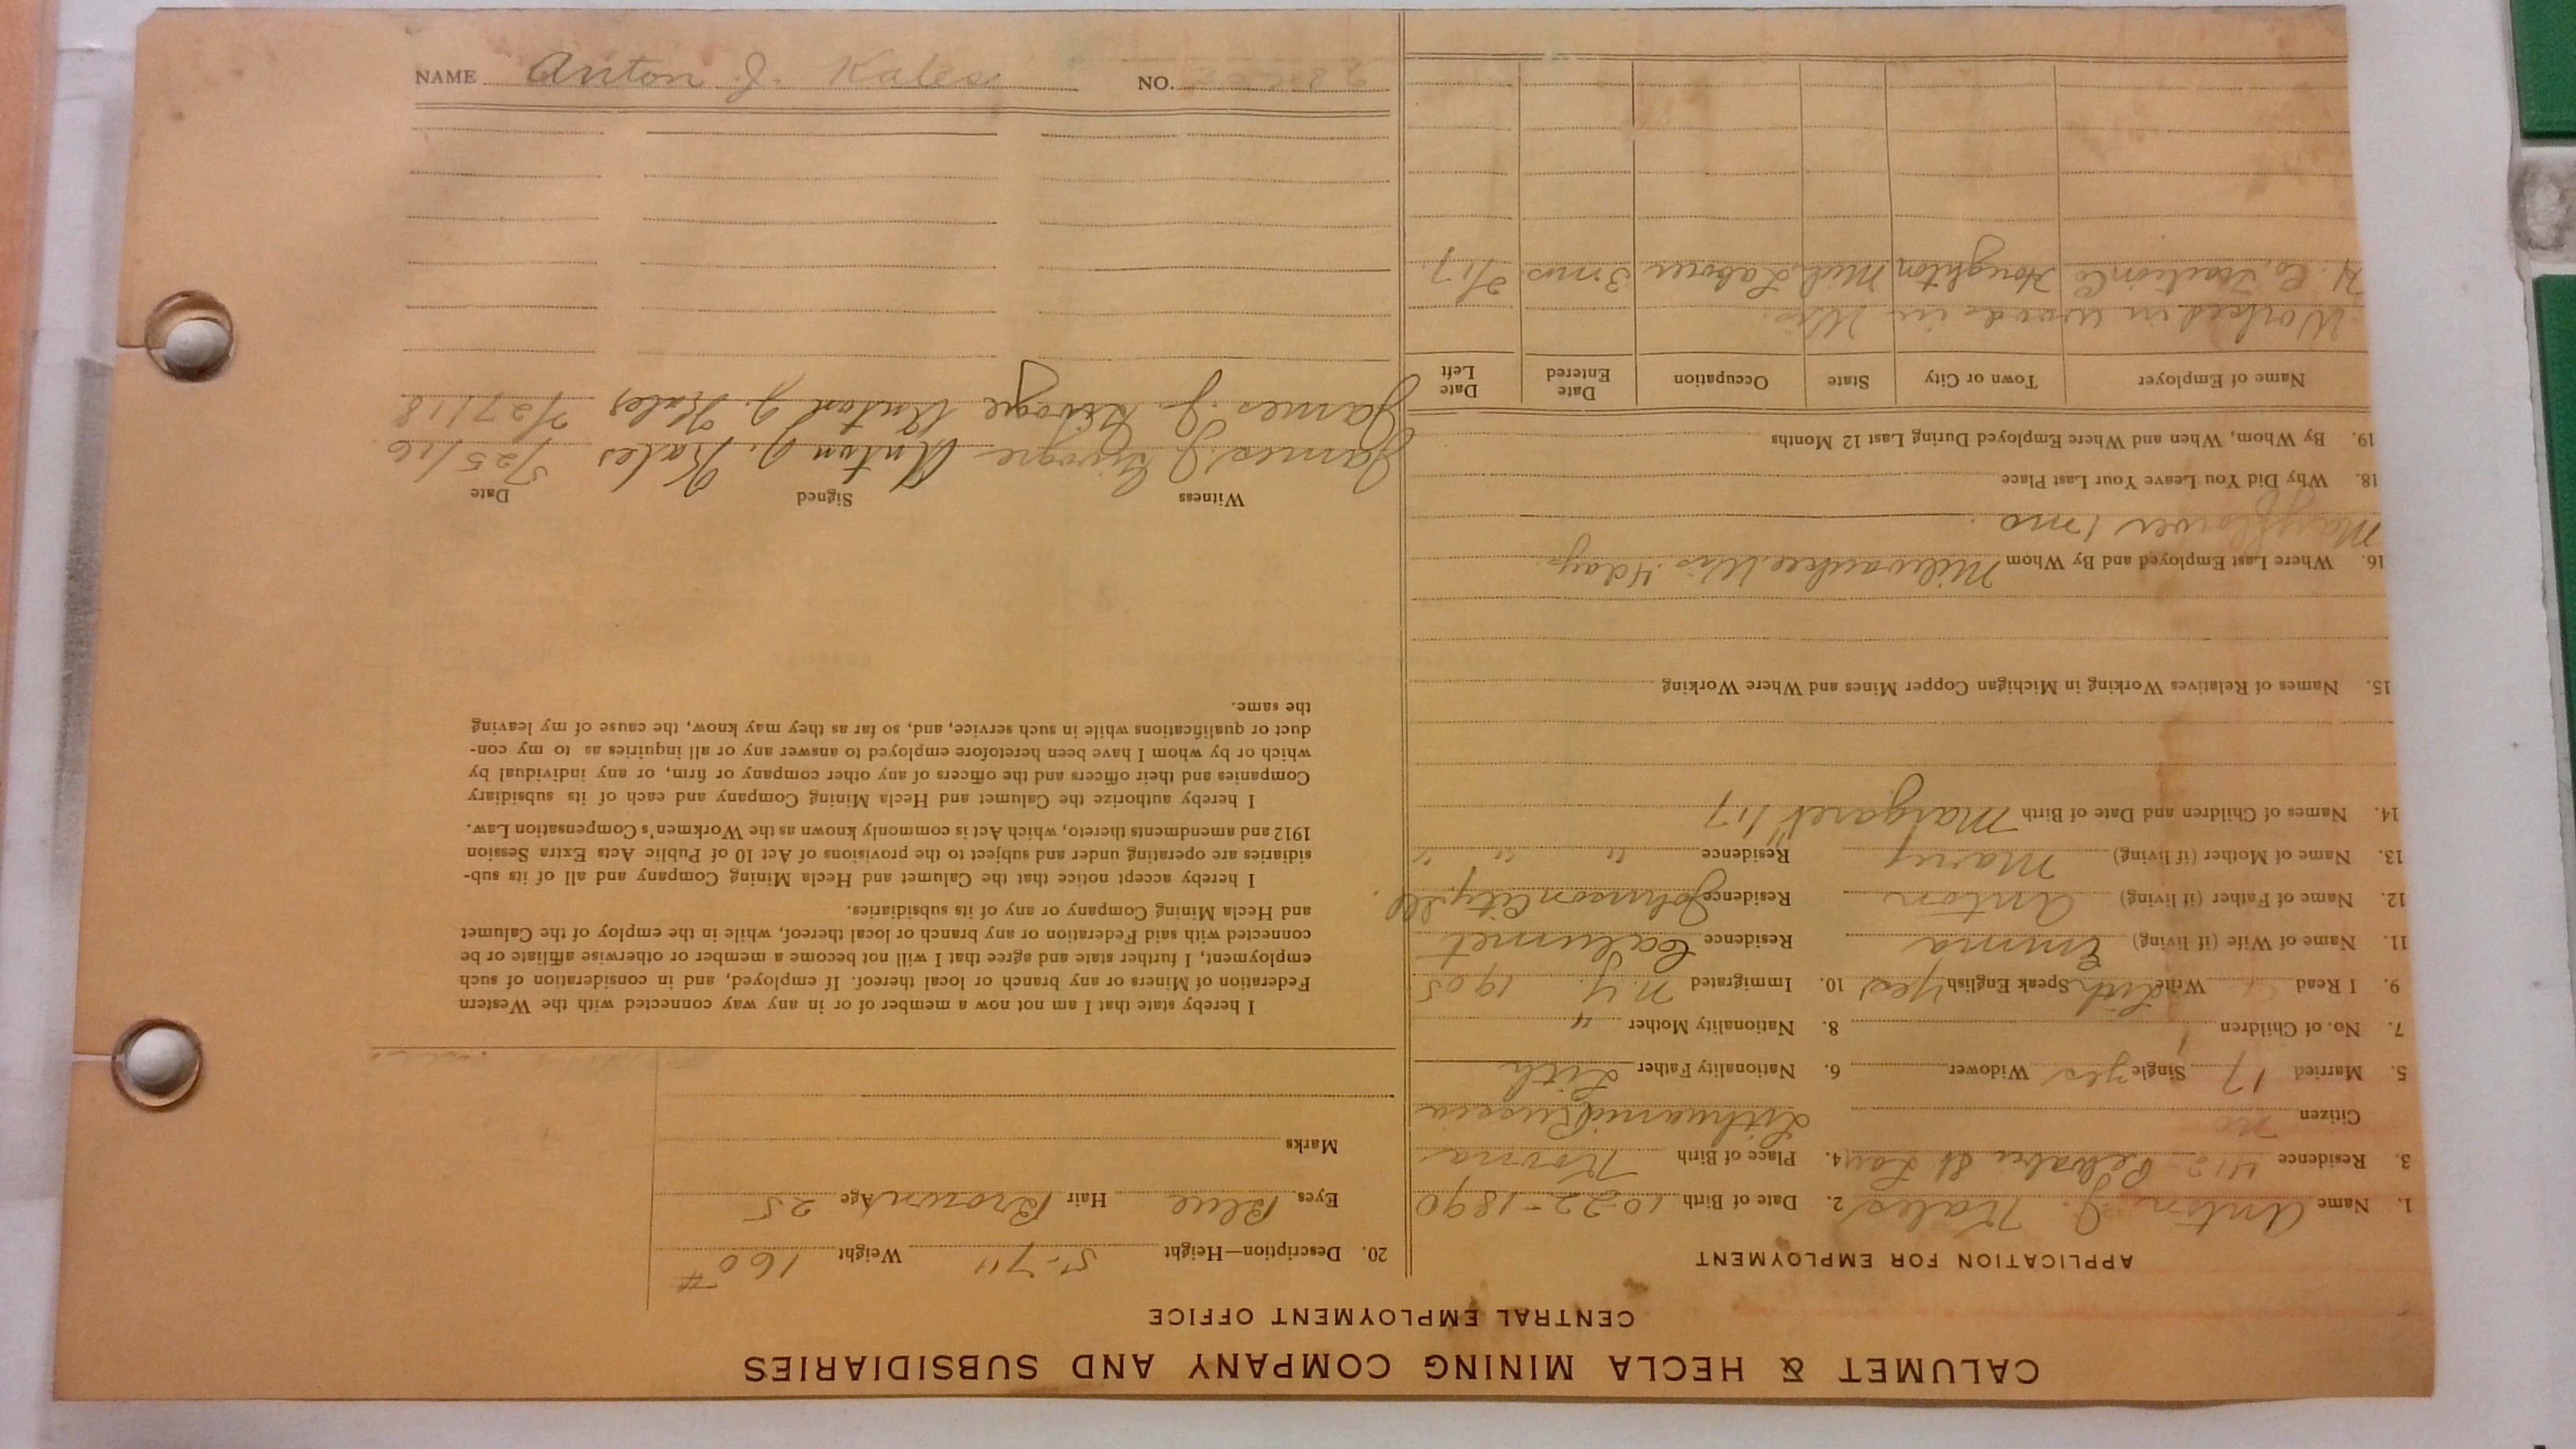 CALUMET & HECLA MINING COMPANY AND SUBSIDIARIES
CENTRAL EMPLOYMENT OFFICE
APPLICATION FOR EMPLOYMENT
1. Name Anton J. Kales 2. Date of Birth 10-22-1890
3. Residence 412 St 4. Place of Birth Kovna
Citizen no Russia
5. Married 17 Single yes Widower 6. Nationality Father Lith
7. No. of Children 1 8. Nationality Mother "
9. I Read Write Lith Speak English yes 10. Immigrated N.Y. 1905
11. Name of Wife (if living) Emma Residence Calumet
12. Name of Father (if living) Anton Residence Johnson City, Ill.
13. Name of Mother (if living) Mary Residence " " " "
14. Names of Children and Date of Birth Margaret 1/17
15. Names of Relatives Working in Michigan Copper Mines and Where Working
16. Where Last Employed and By Whom Milwaukee, Wis. 4 days
Mayflower 1 mo
18. Why Did You Leave Your Last Place
19. By Whom, When and Where Employed During Last 12 Months
Name of Employer Town or City State Occupation Date Entered Date Left
Worked in woods in Wis.
H. Co. Traction Co Houghton Mich. Laborer 3 mos 2/17
20. Description—Height 5-7" Weight 160#
Eyes Blue Hair Brown Age 25
Marks
I hereby state that I am not now a member of or in any way connected with the Western
Federation of Miners or any branch or local thereof. If employed, and in consideration of such
employment, I further state and agree that I will not become a member or otherwise affiliate or be
connected with said Federation or any branch or local thereof, while in the employ of the Calumet
and Hecla Mining Company or any of its subsidiaries.
I hereby accept notice that the Calumet and Hecla Mining Company and all of its sub-
sidiaries are operating under and subject to the provisions of Act 10 of Public Acts Extra Session
1912 and amendments thereto, which Act is commonly known as the Workmen's Compensation Law.
I hereby authorize the Calumet and Hecla Mining Company and each of its subsidiary
Companies and their officers and the officers of any other company or firm, or any individual by
which or by whom I have been heretofore employed to answer any or all inquiries as to my con-
duct or qualifications while in such service, and, so far as they may know, the cause of my leaving
the same.
Witness Signed Date
James J. Anton J. Kales 5/25/16
James J. Anton J. Kales 7/27/18
NAME Anton J. Kales NO.